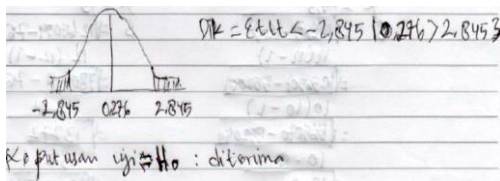 DK = {t|t < -2,845 | 0,276 > 2,845}
-2,845 0,276 2,845
Keputusan uji ⇒ H₀ : diterima